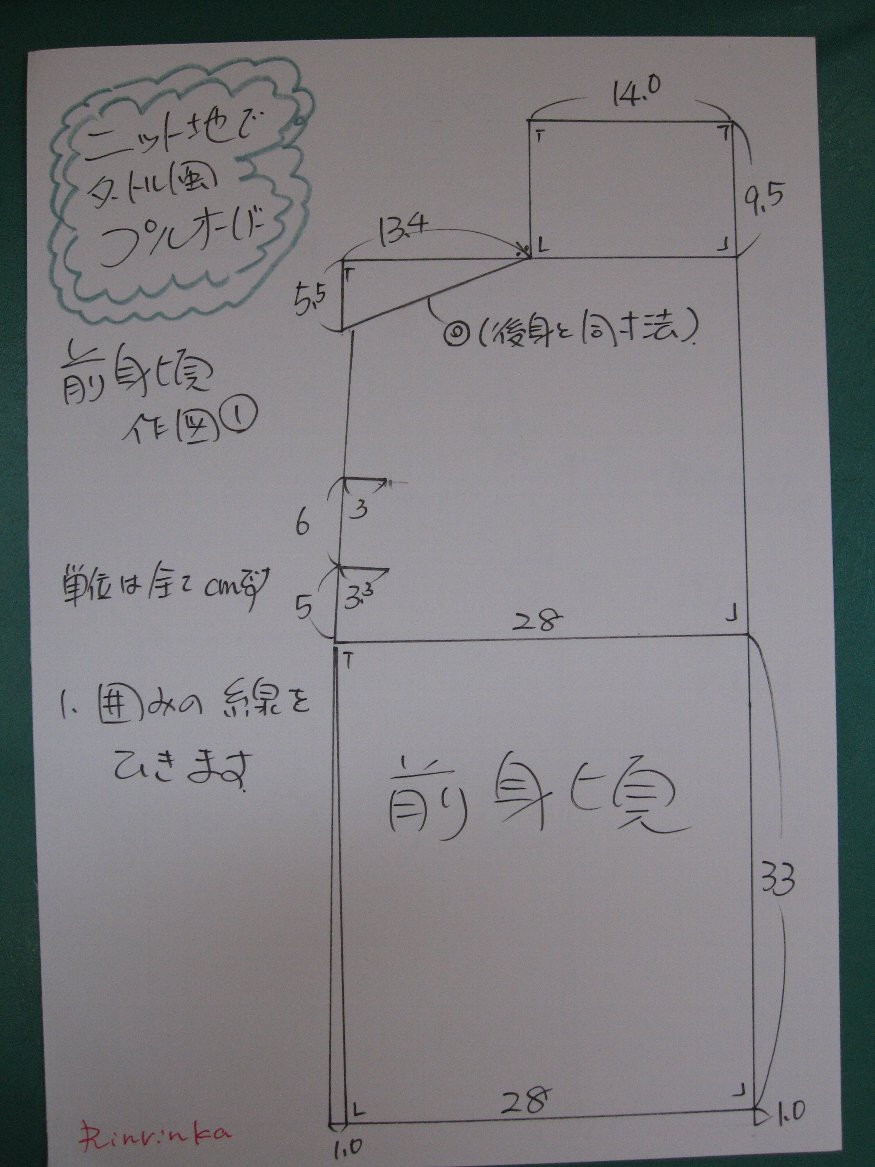 ニット地で
タートル風
プルオーバー
14.0
9.5
13.4
5.5
◎(後身と同寸法)
前身頃
作図①
6
3
単位は全てcmです
5
3.3
28
1. 囲みの線を
ひきます
前身頃
33
28
1.0
1.0
Rinrinka